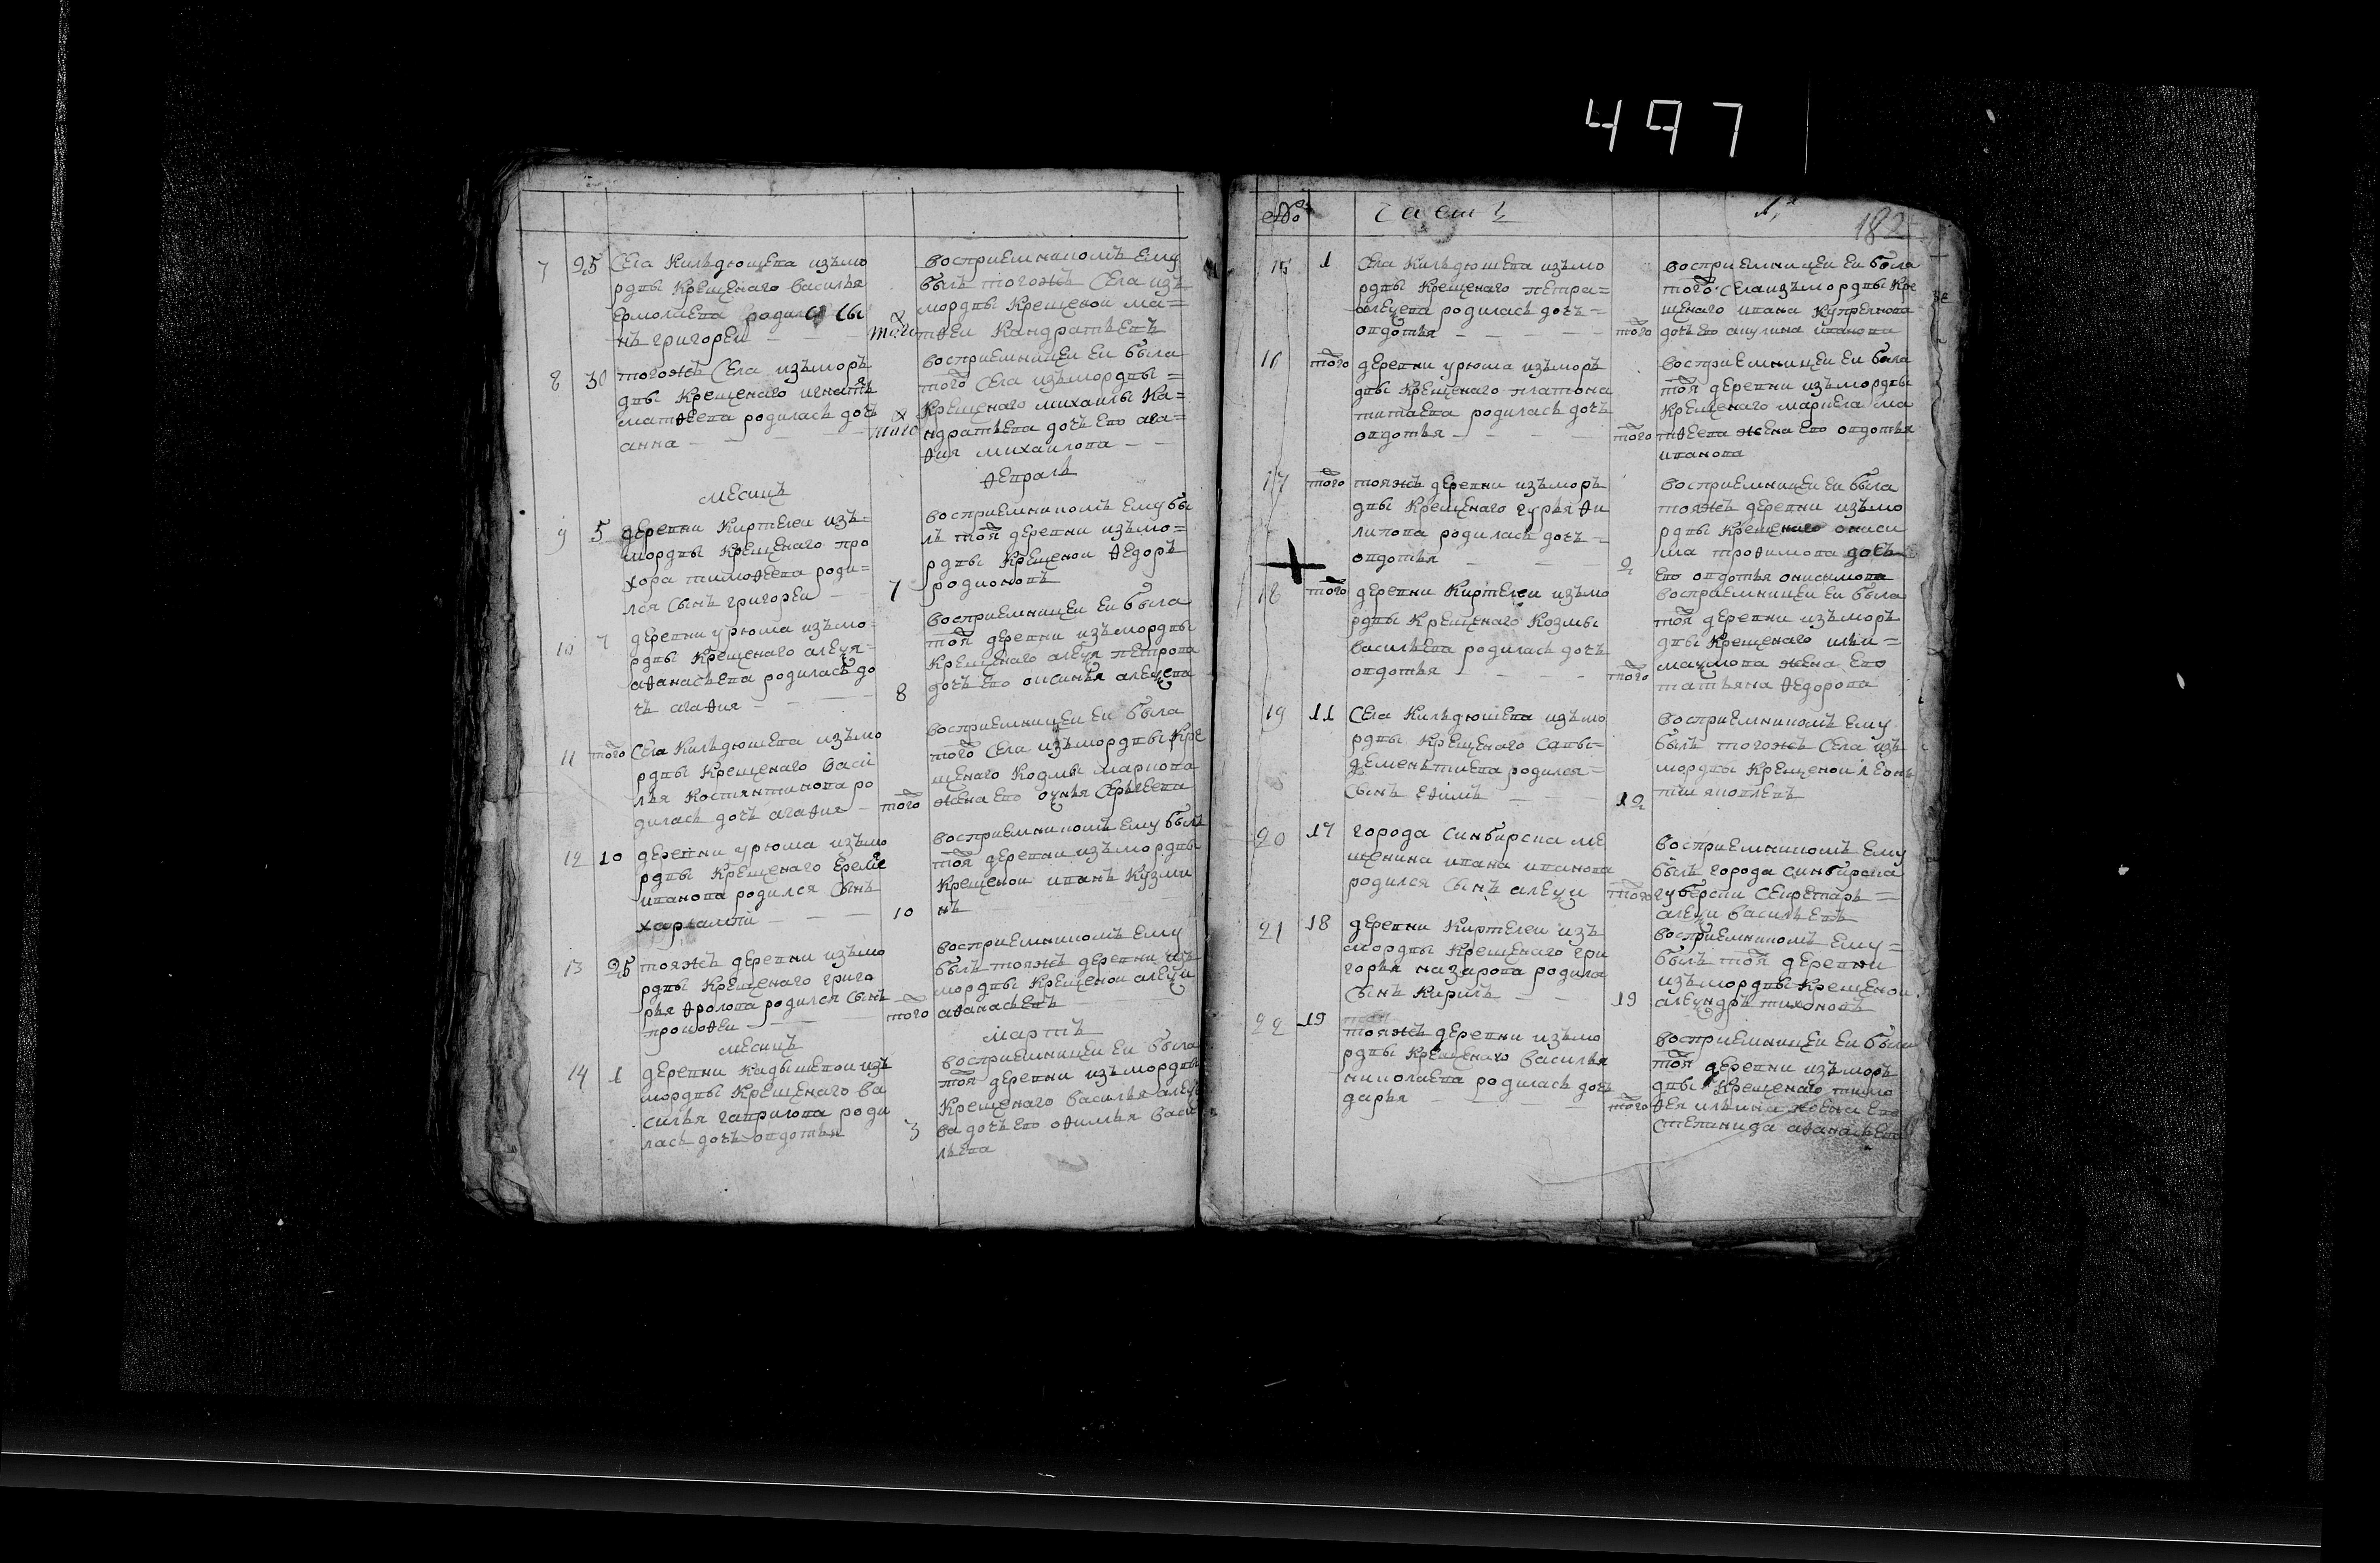 497
7 25 Села Кильдюшева изъ мо
рдвы крещенаго Василья
Ермолаева родился сы
нъ Григореи
того
воспріемникомъ ему
былъ тогожъ села изъ
мордвы крещеной Ма=
тфеи Кандратьевъ
8 30 тогожъ села изъ морд
двы крещенаго Игнатья
Матфеева родилась дочь
Анна
того
воспріемницеи еи была
того села изъ мордвы=
крещенаго Михаилы Ка=
ндратьева дочь ево Ага=
фия Михаилова
месицъ февраль
9 5 деревни Киртелеи изъ=
мордвы крещенаго Про
хора Тимофеева роди=
лся сынъ Григореи
7
воспріемникомъ ему бы
лъ тоя деревни изъ мо=
рдвы крещенои Федоръ
Родионовъ
10 7 деревни Урюма изъ мо=
рдвы крещенаго Алеѯя=
Афанасьева родилась до
чь Агафия
8
воспріемницеи еи была
тоя деревни изъ мордвы
крещенаго Алеѯя Петрова
дочь ево Оксинья Алеѯева
11 того Села Кильдюшева изъ мо
рдвы крещенаго Васи
лья Костянтинова ро
дилась дочь Агафия
того
воспріемницеи еи была
того села изъ мордвы кре
щенаго Козмы Маркова
жена ево Сергеева
12 10 деревни Урюма изъ мо
рдвы крещенаго Ереме
Иванова родился сынъ
Харлампи
10
воспріемникомъ ему былъ
тоя деревни изъ мордвы
крещенои Иванъ Кузми
нъ
13 25 тояжъ деревни изъ мо
рдвы крещенаго Григо
рья Фролова родился сынъ
Прокофеи
того
воспріемникомъ ему
былъ тояжъ деревни изъ
мордвы крещенои Алеѯи
Афанасьевъ
месицъ мартъ
14 1 деревни Кадышевои изъ
мордвы крещенаго Ва
силья Гаврилова роди
лась дочь Овдотья
3
воспріемницеи еи была
тоя деревни изъ мордвы
крещенаго Василья Алеѯе
ва дочь ево Офимья Васи
льева
№ части 1я 182
15 1 Села Кильдюшева изъ мо
рдвы крещенаго Петра=
Алеѯева родилась дочь=
Овдотья
того
воспріемницеи еи была
того села изъ мордвы кре
щенаго Ивана Купреянова
дочь ево Акулина Иванова
16 того деревни Урюма изъ морд
двы крещенаго Платона
Титаева родилась дочь
Овдотья
того
воспріемницеи еи была
тоя деревни изъ мордвы
крещенаго Маркела Ма
тфеева жена ево Овдотья
Иванова
17 того тояжъ деревни изъ морд
двы крещенаго Гурья Фи
липова родилась дочь=
Овдотья
2
воспріемницеи еи была
тояжъ деревни изъ мо
рдвы крещенаго Ониси
ма Трофимова дочь
ево Овдотья Онисимова
18 того деревни Киртелеи изъ мо
рдвы крещенаго Козмы
Васильева родилась дочь
Овдотья
того
воспріемницеи еи была
тоя деревни изъ морд
двы крещенаго Ильи=
Маѯимова жена ево
Татьяна Федорова
19 11 Села Кильдюшева изъ мо
рдвы крещенаго Савы=
Дементиева родился=
сынъ Ефимъ
12
воспріемникомъ ему
былъ тогожъ села изъ
мордвы крещенои Леонъ
тии Яковлевъ
20 17 города Синбирска ме
щенина Ивана Иванова
родился сынъ Алеѯи
того
воспріемникомъ ему
былъ города Синбирска
губерски секретарь=
Алеѯи Васильевъ
21 18 деревни Киртелеи изъ
мордвы крещенаго Гри
горья Назарова родился
сынъ Кирилъ
19
воспріемникомъ ему=
былъ тоя деревни
изъ мордвы крещенои
Алеѯндръ Тихоновъ
22 19 тояжъ деревни изъ мо
рдвы крещенаго Василья
Николаева родилась дочь
Дарья
того
воспріемницеи еи была
тоя деревни изъ морд
двы крещенаго Тимо
фея Ильина жена ево
Степанида Афанасьева